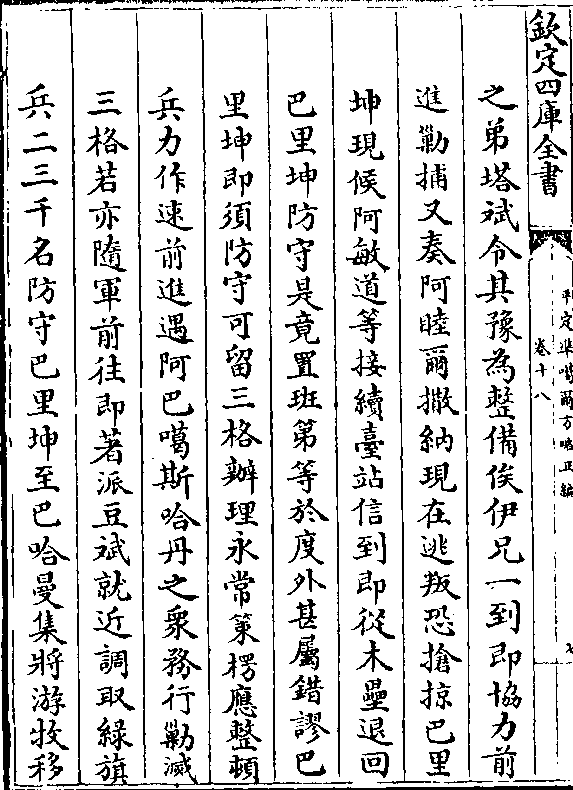 欽定四庫全書
平定準噶爾方略正編
卷十八
七
之弟塔斌令其豫為整備俟伊兄一到即協力前
進勦捕又奏阿睦爾撒納現在逃叛恐搶掠巴里
坤現候阿敏道等接續臺站信到即從木壘退回
巴里坤防守是竟置班第等於度外甚屬錯謬巴
里坤即須防守可留三格辦理永常策楞應整頓
兵力作速前進遇阿巴噶斯哈丹之衆務行勦滅
三格若亦隨軍前往即著派豆斌就近調取綠旗
兵二三千名防守巴里坤至巴哈曼集將游牧移